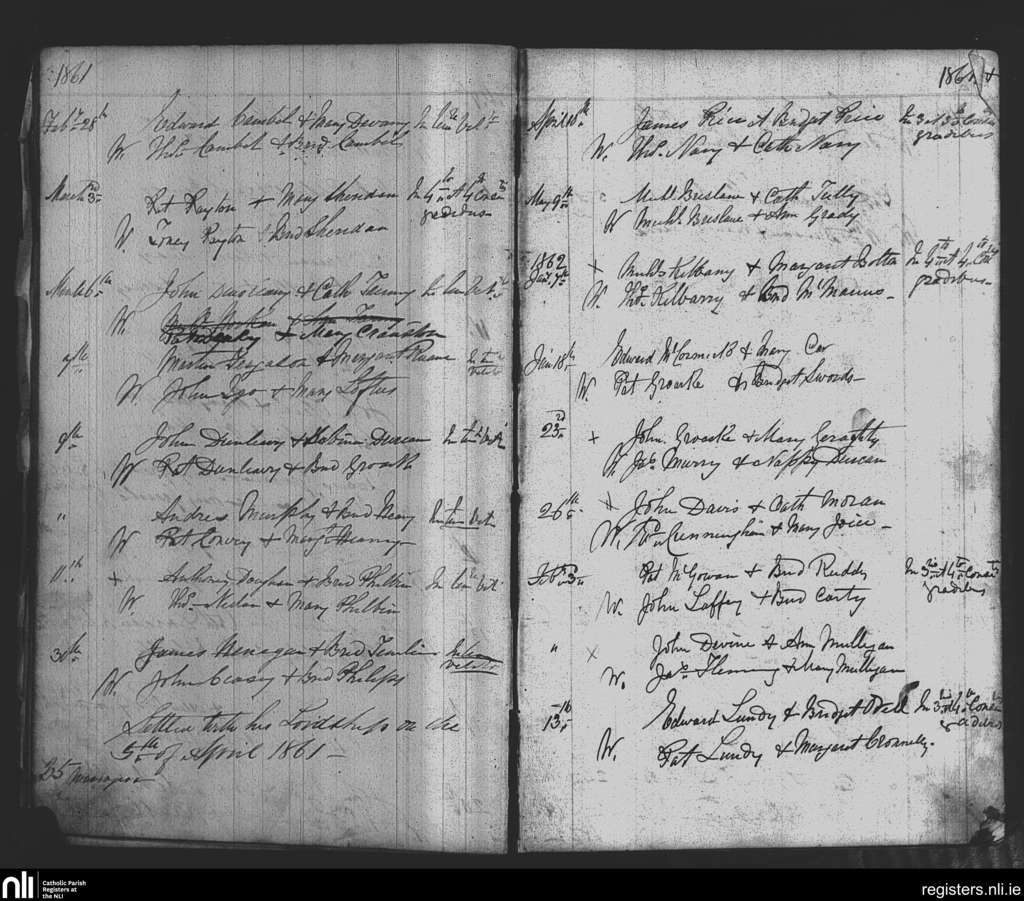 1861
Feby 28th Edward Cambel & Mary Devany In Tem Vet
W. Thos. Cambel & Brid Cambel
March 3rd Pat Rayton & Mary Sheridan In 4to et 4to Consti
gradibus
W Toney Rayton & Brid Sheridan
March 6th John & Cath In Tem Vet
W.
& Mary Cranston
7th Martin & Margaret Ruane In te
Vetito
W. John Igo & Mary Loftus
9th John Dunleavy & Sabina Duncan In tem Vet
W Pat Dunleavy & Brid Groark
" Andrew Murphy & Brid In tem Vet
W Pat Conroy & Margt
11th + Anthony & Brid Philbin In tem Vet
W. Thos. Neilan & Mary Philbin
30th James Henagan & Brid Tomlin In tem
Vetito
W. John Creasy & Brid Philips
Settled with his Lordship on the
5th of April 1861 —
25 Marriages
1861 +
April 18th James Price & Bridget Price In 3 et 3 Consti
gradibus
W. Thos. Nary & Cath Nary
May 9th Michl Breslane & Cath Tully
W Michl Breslane & Ann Grady
1862
Jany. 7th + Michl Kilbany & Margaret Botton In 4to et 4to Consti
gradibus
W. Thos. Kilbarry & Brid McManus —
Jan 18th Edward McCormick & Mary Cox
W. Pat Groarke & Bridget Swords —
23rd + John Groarke & Mary Geraghty
W Jas. Murry & Nappy Duncan
26th + John Davis & Cath Moran
W Thos Cunningham & Mary Joice —
Feby. 3rd Pat McGowan & Brid Ruddy In 3io et 4to Consti
gradibus
W. John Laffey & Brid Carty
" + John Devine & Ann Mulligan
W. Jas. Fleming & Mary Mulligan
13th Edward Lundy & Bridget Odell In 3 et 4to Consti
gradibus
W. Pat Lundy & Margaret Cronnelly.
nli
Catholic Parish
Registers at
the NLI
registers.nli.ie